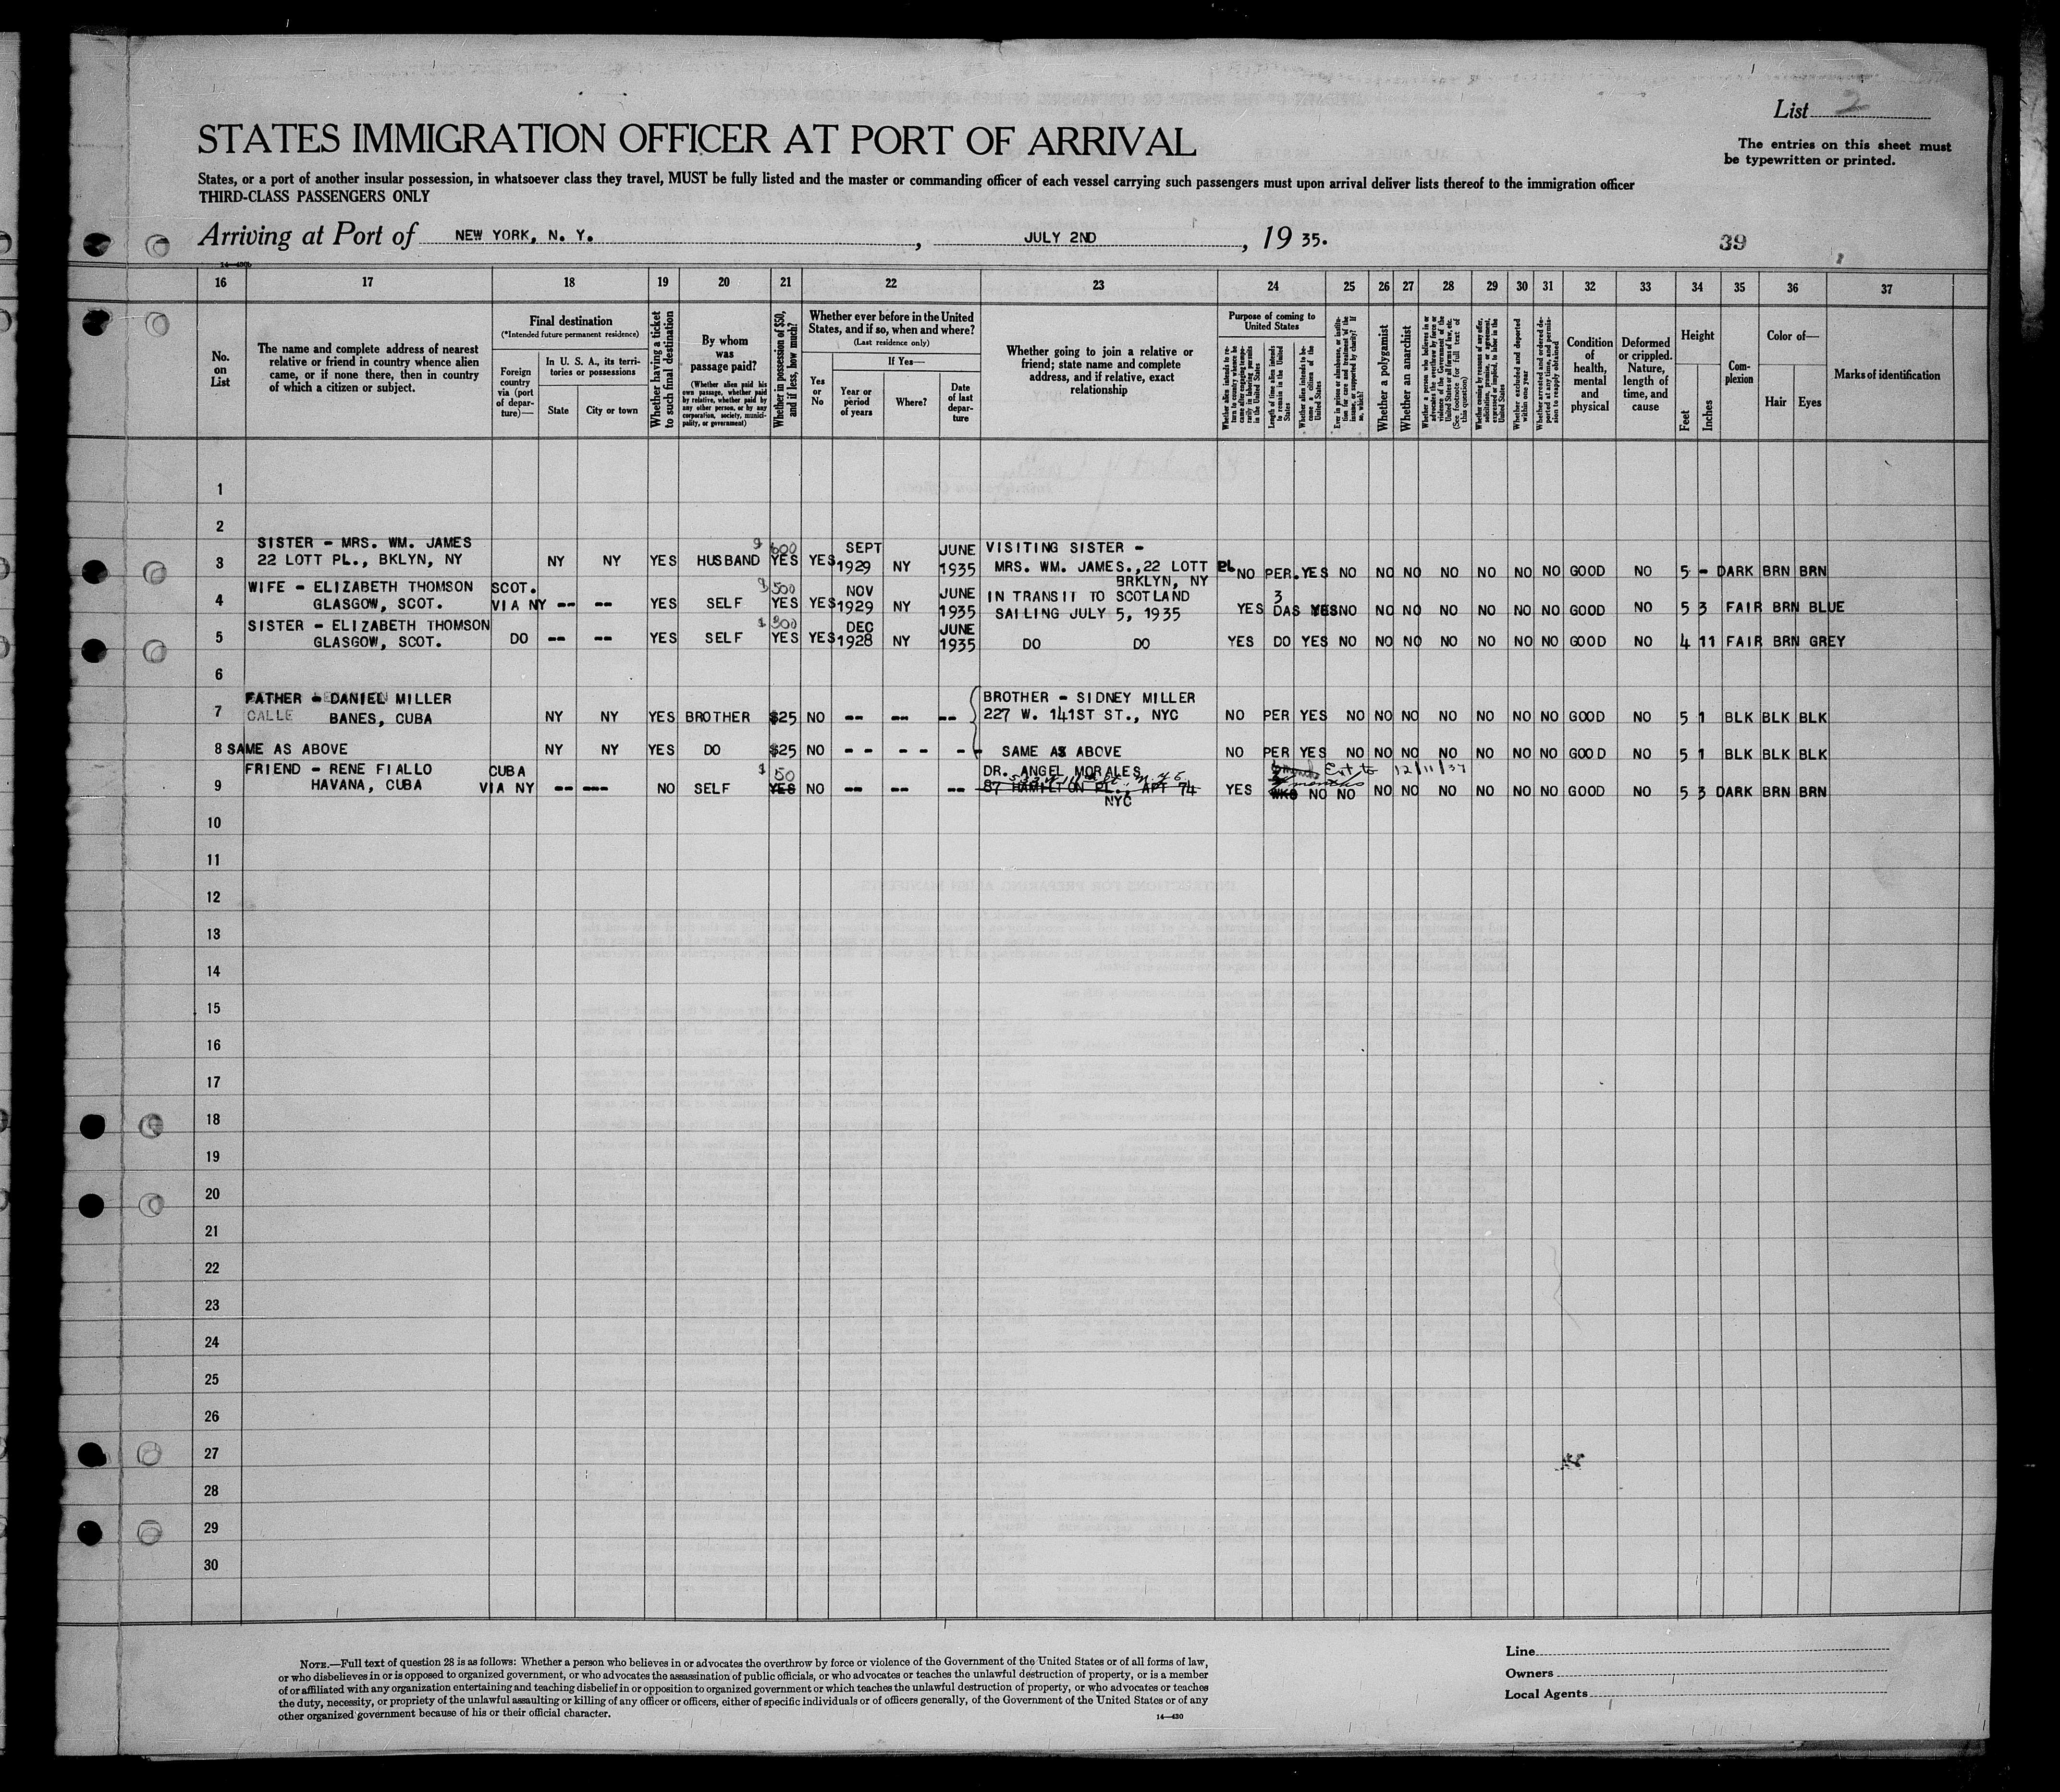 List 2
The entries on this sheet must
be typewritten or printed.
STATES IMMIGRATION OFFICER AT PORT OF ARRIVAL
States, or a port of another insular possession, in whatsoever class they travel, MUST be fully listed and the master or commanding officer of each vessel carrying such passengers must upon arrival deliver lists thereof to the immigration officer
THIRD-CLASS PASSENGERS ONLY
Arriving at Port of NEW YORK, N. Y. , JULY 2ND , 19 35.
39
16 17 18 19 20 21 22 23 24 25 26 27 28 29 30 31 32 33 34 35 36 37
No. on List
The name and complete address of nearest
relative or friend in country whence alien
came, or if none there, then in country
of which a citizen or subject.
Final destination
(*Intended future permanent residence)
Foreign country via (port of departure)—
In U. S. A., its territories or possessions
State
City or town
Whether having a ticket to such final destination
By whom was passage paid?
(Whether alien paid his own passage, whether paid by relative, whether paid by any other person, or by any corporation, society, municipality, or government)
Whether in possession of $50, and if less, how much?
Whether ever before in the United
States, and if so, when and where?
(Last residence only)
Yes or No
If Yes—
Year or period of years
Where?
Date of last departure
Whether going to join a relative or
friend; state name and complete
address, and if relative, exact
relationship
Purpose of coming to United States
Length of time alien intends to remain in the United States
Whether alien intends to become a citizen of the United States
Whether a polygamist
Whether an anarchist
Condition of health, mental and physical
Deformed or crippled. Nature, length of time, and cause
Height
Feet
Inches
Complexion
Color of—
Hair
Eyes
Marks of identification
1
2
SISTER - MRS. WM. JAMES $ 600 SEPT JUNE VISITING SISTER -
3 22 LOTT PL., BKLYN, NY NY NY YES HUSBAND YES YES 1929 NY 1935 MRS. WM. JAMES.,22 LOTT PL NO PER. YES NO NO NO NO NO NO NO GOOD NO 5 - DARK BRN BRN
BRKLYN, NY
WIFE - ELIZABETH THOMSON SCOT. $ 500 NOV JUNE IN TRANSIT TO SCOTLAND 3
4 GLASGOW, SCOT. VIA NY -- -- YES SELF YES YES 1929 NY 1935 SAILING JULY 5, 1935 YES DAS YES NO NO NO NO NO NO NO GOOD NO 5 3 FAIR BRN BLUE
SISTER - ELIZABETH THOMSON $ 300 DEC JUNE
5 GLASGOW, SCOT. DO -- -- YES SELF YES YES 1928 NY 1935 DO DO YES DO YES NO NO NO NO NO NO NO GOOD NO 4 11 FAIR BRN GREY
6
FATHER - DANIEL MILLER BROTHER - SIDNEY MILLER
7 CALLE BANES, CUBA NY NY YES BROTHER $25 NO -- -- -- 227 W. 141ST ST., NYC NO PER YES NO NO NO NO NO NO NO GOOD NO 5 1 BLK BLK BLK
8 SAME AS ABOVE NY NY YES DO $25 NO -- -- -- SAME AS ABOVE NO PER YES NO NO NO NO NO NO NO GOOD NO 5 1 BLK BLK BLK
FRIEND - RENE FIALLO CUBA $ 50 DR. ANGEL MORALES Ext to
9 HAVANA, CUBA VIA NY -- --- NO SELF YES NO -- -- -- 87 HAMILTON PL., APT 74 YES months WKS NO NO NO NO NO NO NO NO GOOD NO 5 3 DARK BRN BRN
NYC
10
11
12
13
14
15
16
17
18
19
20
21
22
23
24
25
26
27
28
29
30
NOTE.—Full text of question 28 is as follows: Whether a person who believes in or advocates the overthrow by force or violence of the Government of the United States or of all forms of law,
or who disbelieves in or is opposed to organized government, or who advocates the assassination of public officials, or who advocates or teaches the unlawful destruction of property, or is a member
of or affiliated with any organization entertaining and teaching disbelief in or opposition to organized government or which teaches the unlawful destruction of property, or who advocates or teaches
the duty, necessity, or propriety of the unlawful assaulting or killing of any officer or officers, either of specific individuals or of officers generally, of the Government of the United States or of any
other organized government because of his or their official character.
14—430
Line
Owners
Local Agents